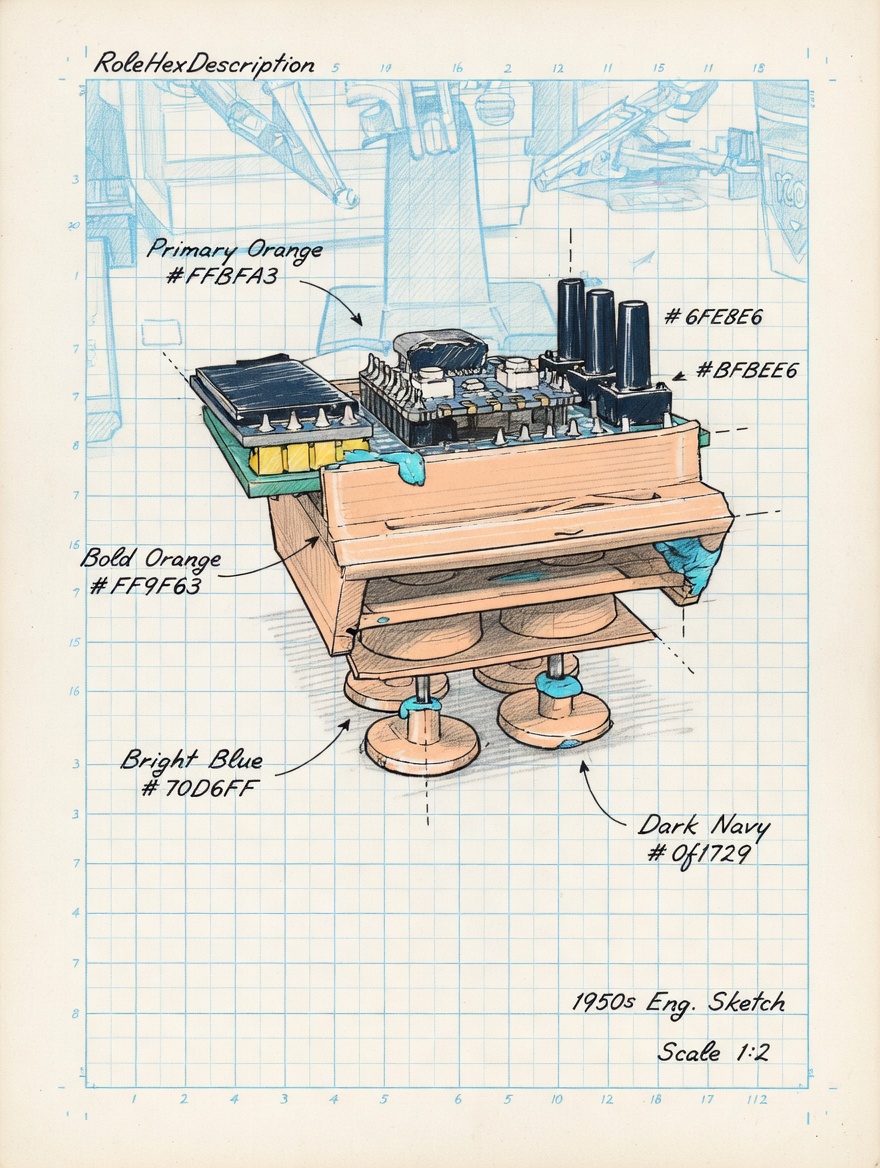 RoleHexDescription
5 10 16 2 12 11 15 11 18
3
20
1
7
7
6
7
16
7
15
16
3
3
7
4
7
8
Primary Orange
#FFBFA3
# 6FE8E6
#BFBEE6
Bold Orange
#FF9F63
Bright Blue
#70D6FF
Dark Navy
# 0f1729
1950s Eng. Sketch
Scale 1:2
1 2 4 3 5 6 5 10 12 18 17 112